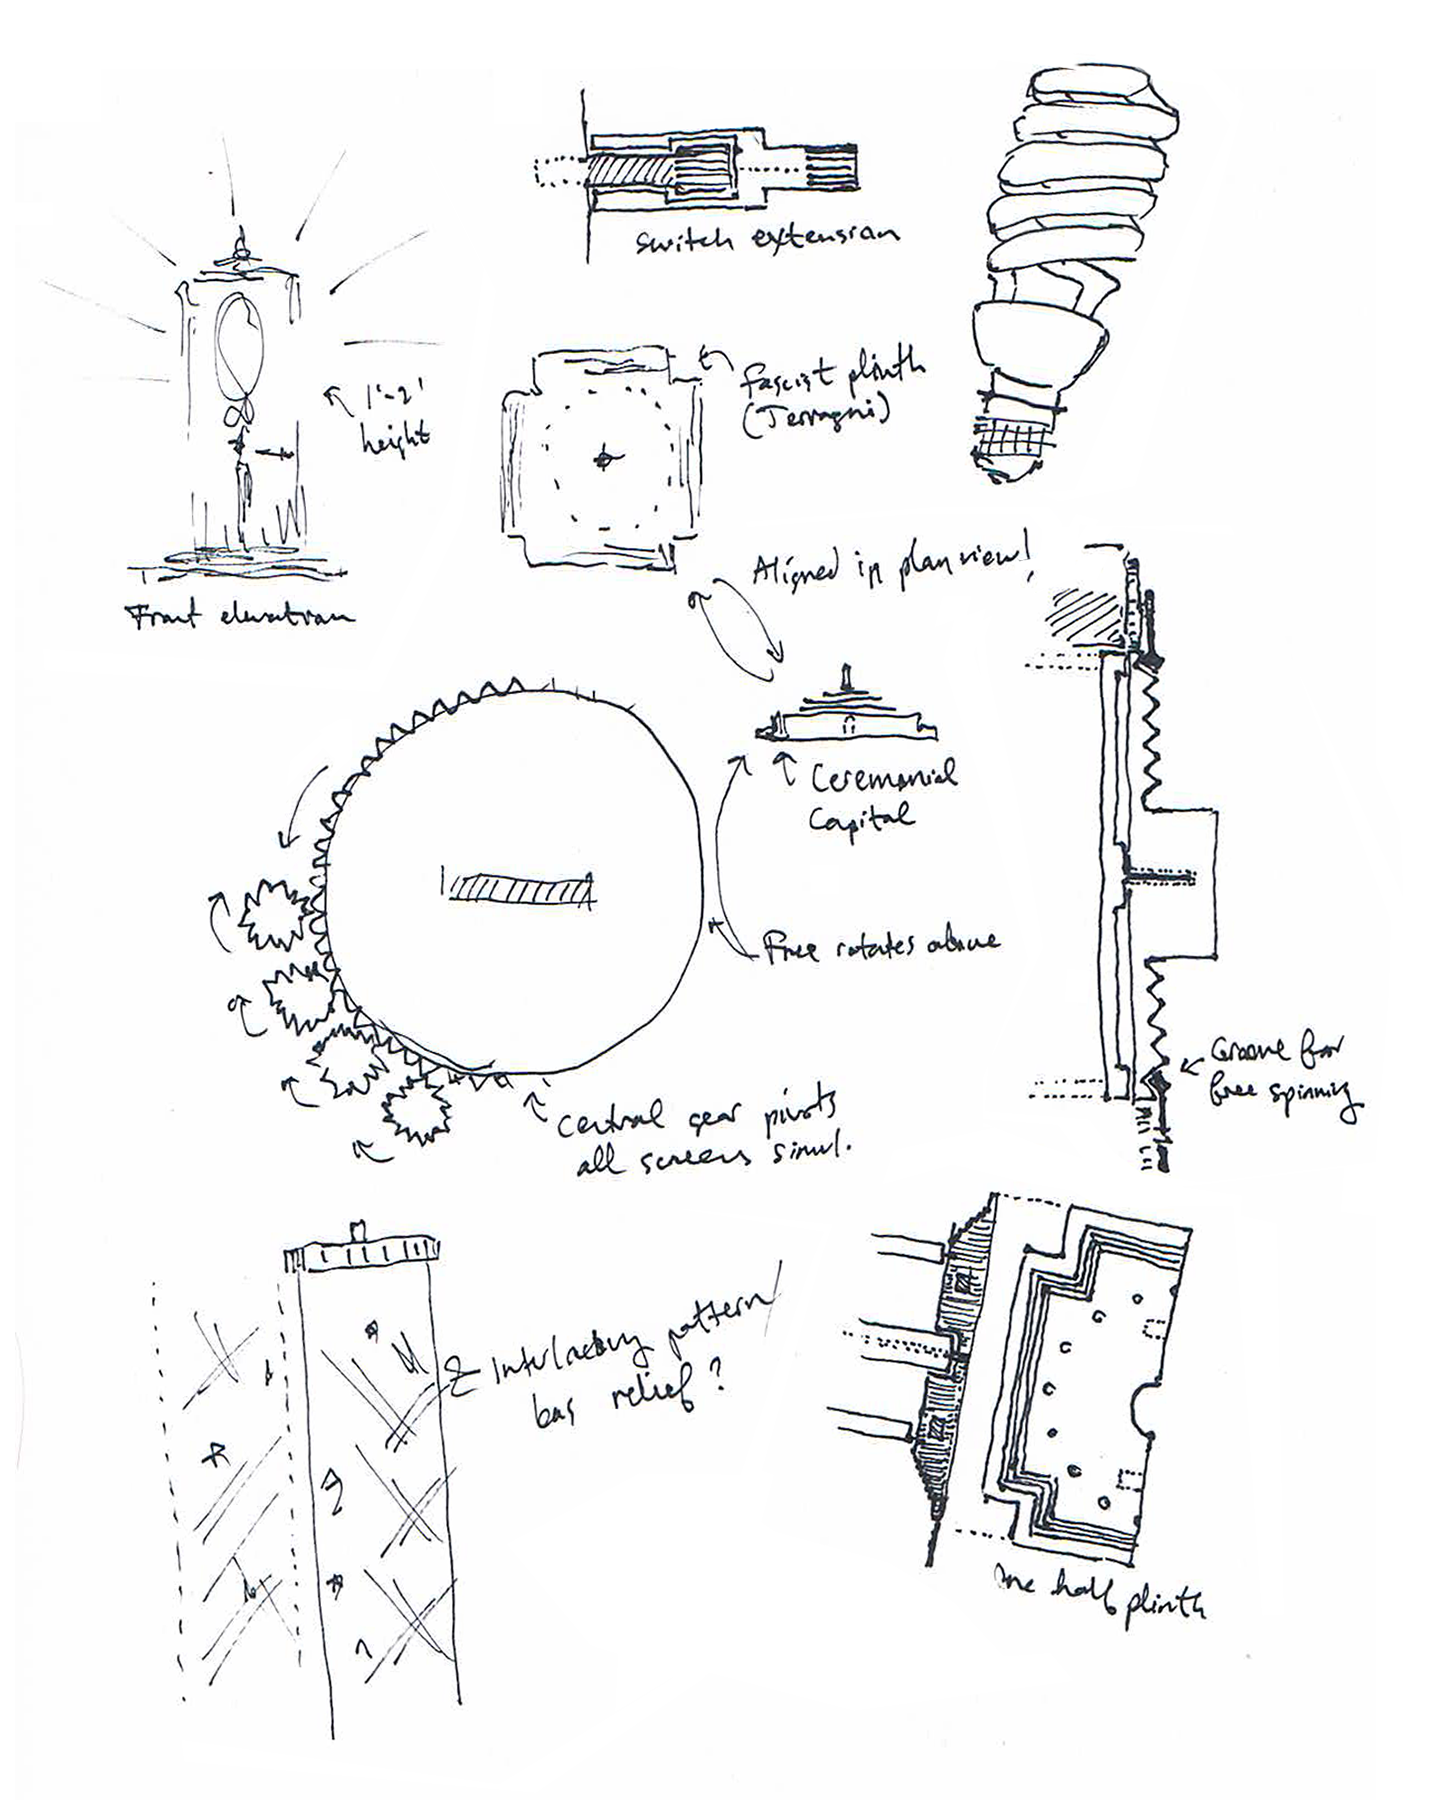 Switch extension
1'-2'
height
Fascist plinth
(Terragni)
Front elevation
Aligned in plan view!
Ceremonial
Capital
Free rotates above
Groove for
free spinning
Central gear pivots
all screens simul.
Interlacing pattern
bas relief?
One half plinth